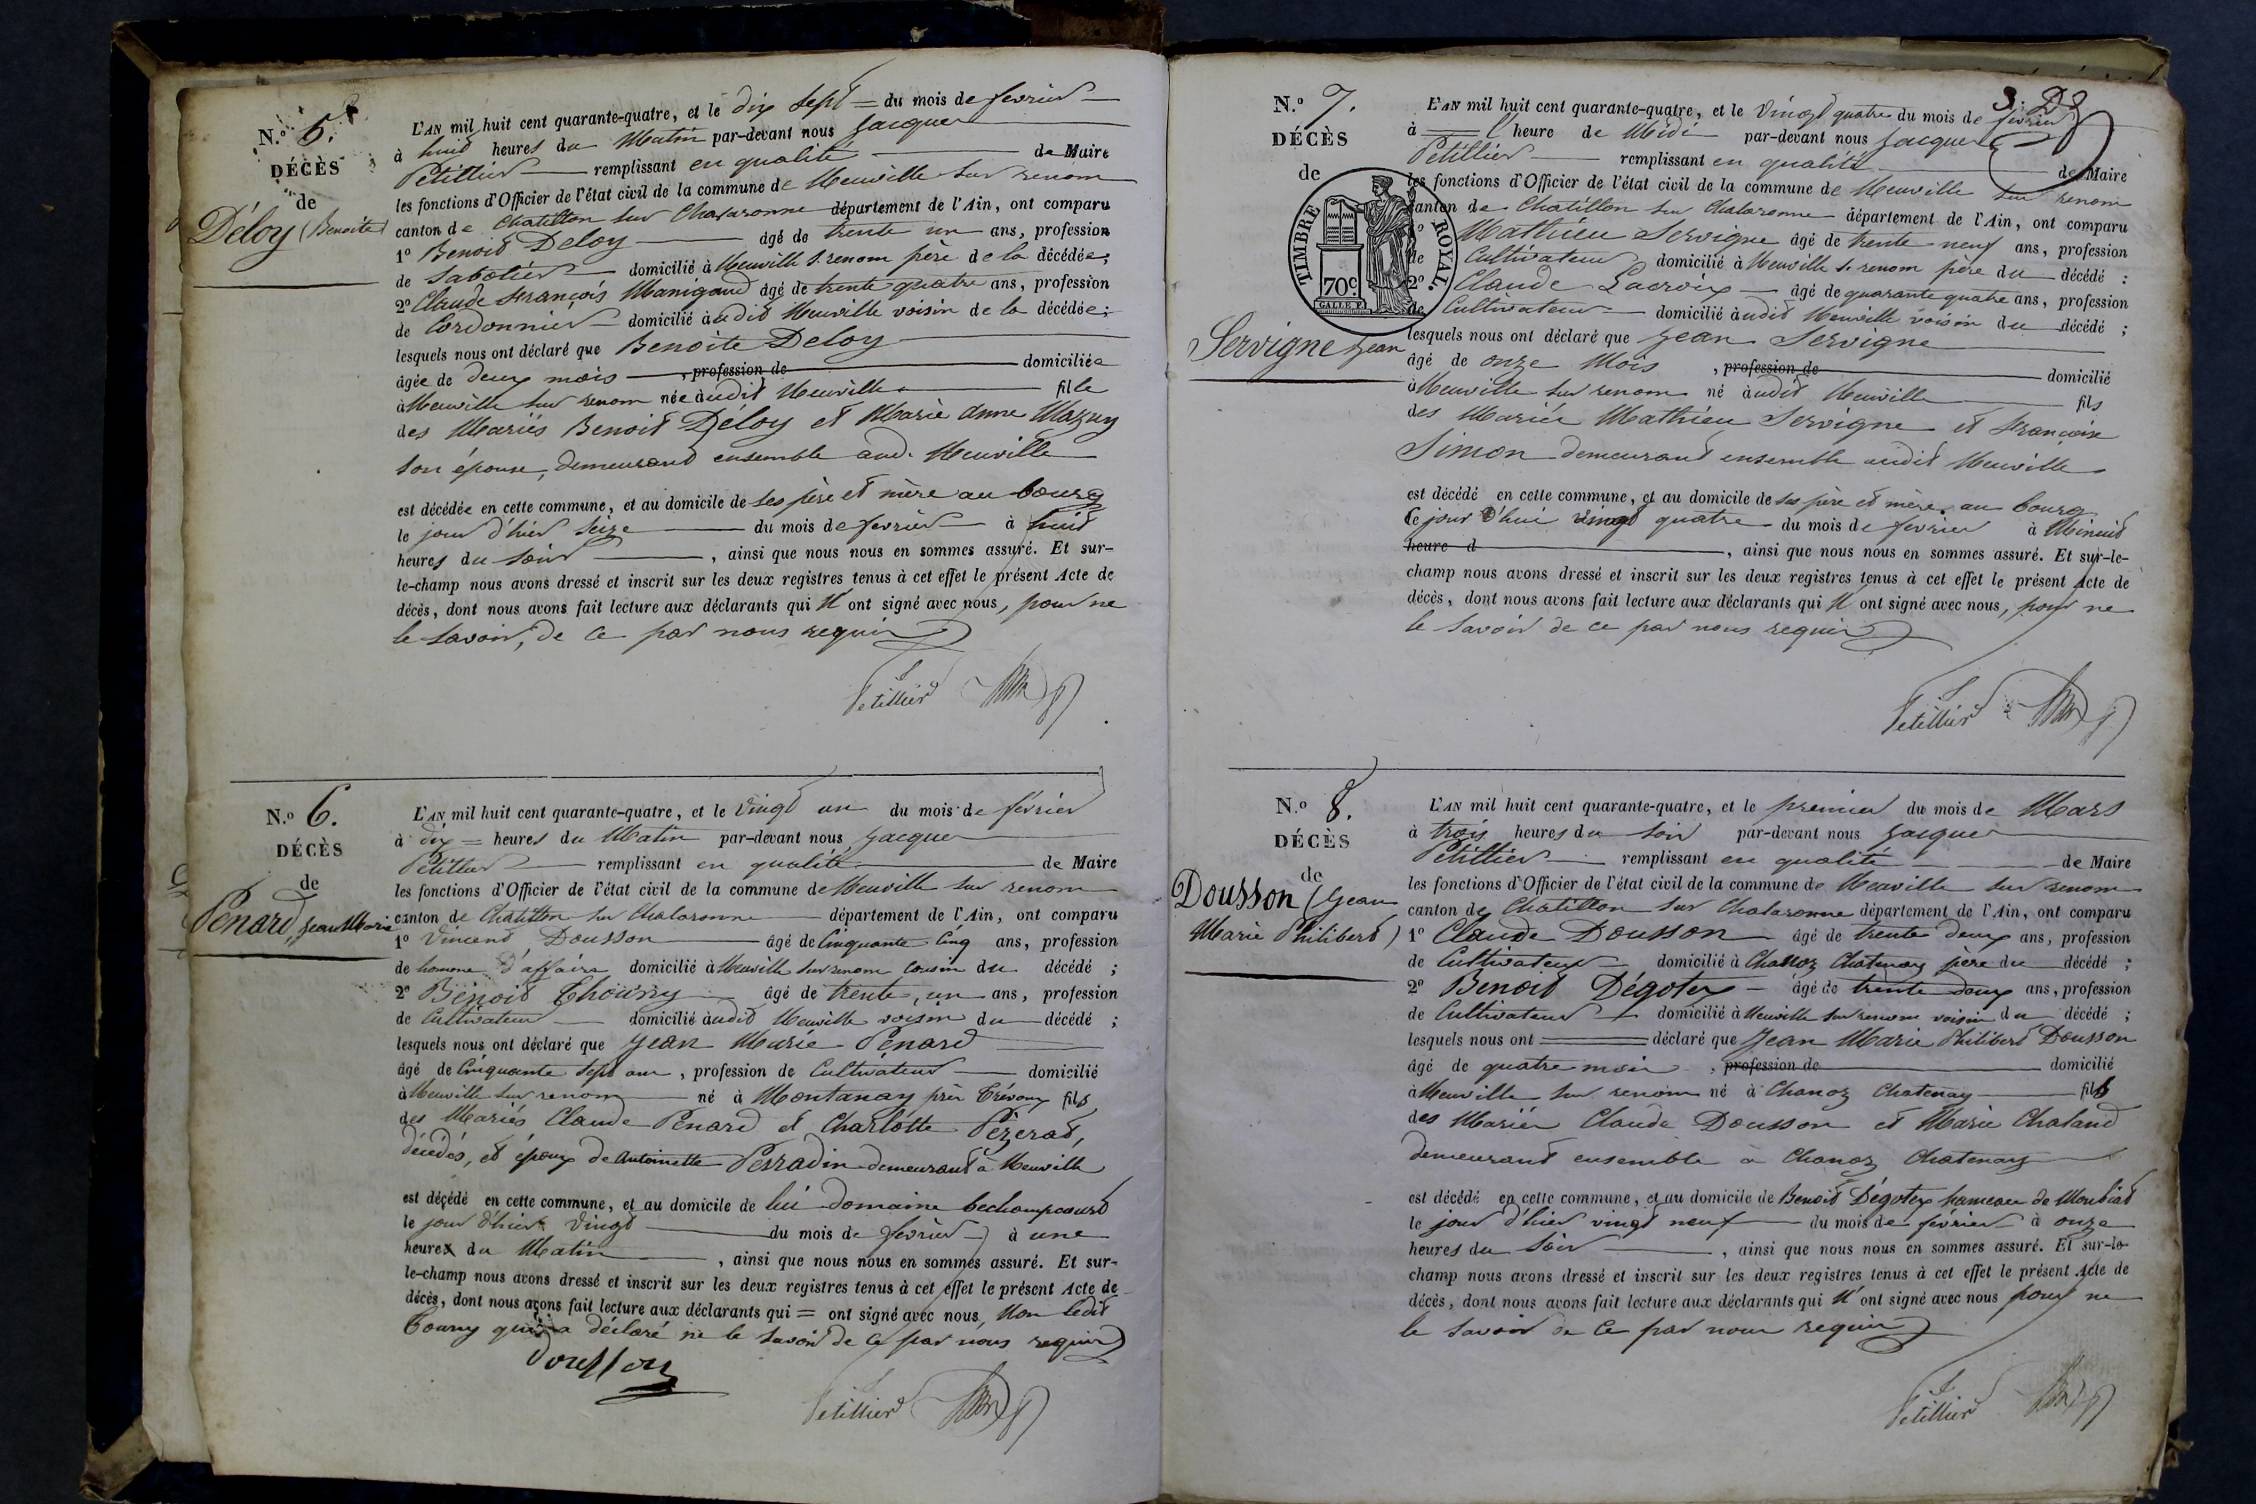 N.º 5.
DÉCÈS
de
Déloy (Benoite)
L'AN mil huit cent quarante-quatre, et le dix sept = du mois de fevrier
à huit heures du Matin par-devant nous Jacques
Petillier remplissant en qualité de Maire
les fonctions d'Officier de l'état civil de la commune de Neuville sur renom
canton de Chatillon sur Chalaronne département de l'Ain, ont comparu
1º Benoit Deloy âgé de trente un ans, profession
de Sabotier domicilié à Neuville s. renom père de la décédée;
2º Claude François Manigand âgé de trente quatre ans, profession
de Cordonnier domicilié audit Neuville voisin de la décédée;
lesquels nous ont déclaré que Benoite Deloy
âgée de deux mois , profession de domiciliée
à Neuville sur renom née audit Neuville fille
des Mariés Benoit Déloy et Marie Anne Mazuy
son épouse, demeurant ensemble aud. Neuville
est décédée en cette commune, et au domicile de ses père et mère au bourg
le jour d'hier seize du mois de fevrier à huit
heures du soir , ainsi que nous nous en sommes assuré. Et sur-
le-champ nous avons dressé et inscrit sur les deux registres tenus à cet effet le présent Acte de
décès, dont nous avons fait lecture aux déclarants qui N' ont signé avec nous, pour ne
le savoir, de ce par nous requis
Petillier
N.º 6.
DÉCÈS
de
Penard, Jean Marie
L'AN mil huit cent quarante-quatre, et le vingt un du mois de février
à dix = heures du Matin par-devant nous Jacques
Petillier remplissant en qualité de Maire
les fonctions d'Officier de l'état civil de la commune de Neuville sur renom
canton de Chatillon sur Chalaronne département de l'Ain, ont comparu
1º Vincent Dousson âgé de Cinquante Cinq ans, profession
de homme d'affaire domicilié à Neuville sur renom cousin du décédé ;
2º Benoit Thourny âgé de trente, un ans, profession
de Cultivateur domicilié audit Neuville voisin du décédé ;
lesquels nous ont déclaré que Jean Marie Penard
âgé de Cinquante sept ans , profession de Cultivateur domicilié
à Neuville sur renom né à Montanay près Trévoux fils
des Mariés Claude Penard et Charlotte Pézerat,
décédés, et époux de Antoinette Perradin demeurant à Neuville
est décédé en cette commune, et au domicile de lui domaine bechampcourt
le jour d'hier Vingt du mois de février à une
heure du Matin , ainsi que nous nous en sommes assuré. Et sur-
le-champ nous avons dressé et inscrit sur les deux registres tenus à cet effet le présent Acte de
décès, dont nous avons fait lecture aux déclarants qui = ont signé avec nous, Non ledit
Tourny qui a déclaré ne le savoir de ce par nous requis
Dousson
Petillier
3.
N.º 7.
DÉCÈS
de
TIMBRE ROYAL.
70 c.
GALLE F.
Servigne Jean
L'AN mil huit cent quarante-quatre, et le vingt quatre du mois de fevrier
à l' heure de Midi par-devant nous Jacques
Petillier remplissant en qualité de Maire
les fonctions d'Officier de l'état civil de la commune de Neuville sur renom
canton de Chatillon sur Chalaronne département de l'Ain, ont comparu
1º Mathieu Servigne âgé de trente neuf ans, profession
de Cultivateur domicilié à Neuville s. renom père du décédé :
2º Claude Lacroix âgé de quarante quatre ans, profession
de Cultivateur domicilié audit Neuville voisin du décédé ;
lesquels nous ont déclaré que Jean Servigne
âgé de onze Mois , profession de domicilié
à Neuville sur renom né audit Neuville fils
des Mariés Mathieu Servigne et Françoise
Simon demeurant ensemble audit Neuville
est décédé en cette commune, et au domicile de ses père et mère au bourg
Ce jour d'hui vingt quatre du mois de fevrier à Minuit
heure d , ainsi que nous nous en sommes assuré. Et sur-le-
champ nous avons dressé et inscrit sur les deux registres tenus à cet effet le présent Acte de
décès, dont nous avons fait lecture aux déclarants qui N' ont signé avec nous, pour ne
le savoir de ce par nous requis
Petillier
N.º 8.
DÉCÈS
de
Dousson (Jean
Marie Philibert)
L'AN mil huit cent quarante-quatre, et le premier du mois de Mars
à trois heures du soir par-devant nous Jacques
Petillier remplissant en qualité de Maire
les fonctions d'Officier de l'état civil de la commune de Neuville sur renom
canton de Chatillon sur Chalaronne département de l'Ain, ont comparu
1º Claude Dousson âgé de trente deux ans, profession
de Cultivateur domicilié à Chanoz Chatenay père du décédé ;
2º Benoit Dégotex âgé de trente deux ans, profession
de Cultivateur domicilié à Neuville sur renom voisin du décédé ;
lesquels nous ont déclaré que Jean Marie Philibert Dousson
âgé de quatre mois , profession de domicilié
à Neuville sur renom né à Chanoz Chatenay fils
des Mariés Claude Dousson et Marie Chaland
demeurant ensemble à Chanoz Chatenay
est décédé en cette commune, et au domicile de Benoit Dégotex hameau de Monbiat
le jour d'hier vingt neuf du mois de février à onze
heures du Soir , ainsi que nous nous en sommes assuré. Et sur-le-
champ nous avons dressé et inscrit sur les deux registres tenus à cet effet le présent Acte de
décès, dont nous avons fait lecture aux déclarants qui N' ont signé avec nous pour ne
le savoir de ce par nous requis
Petillier